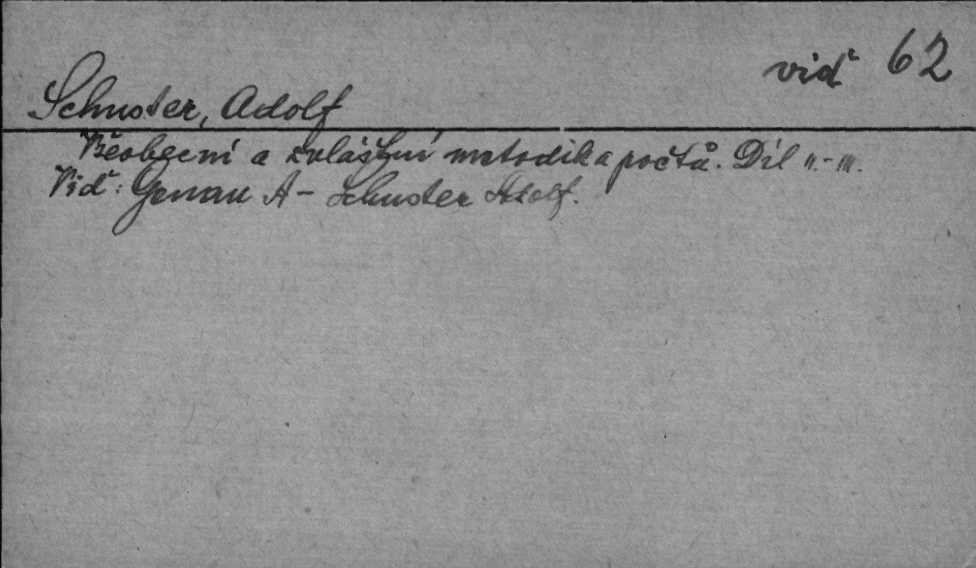 viď 62
Schuster, Adolf
Všeobecní a zvláštní metodika počtů. Díl II.-III.
Viď: Genau A - Schuster Adolf.